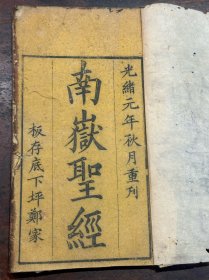 光緒元年秋月重刊
南嶽聖經
板存底下坪鄭家